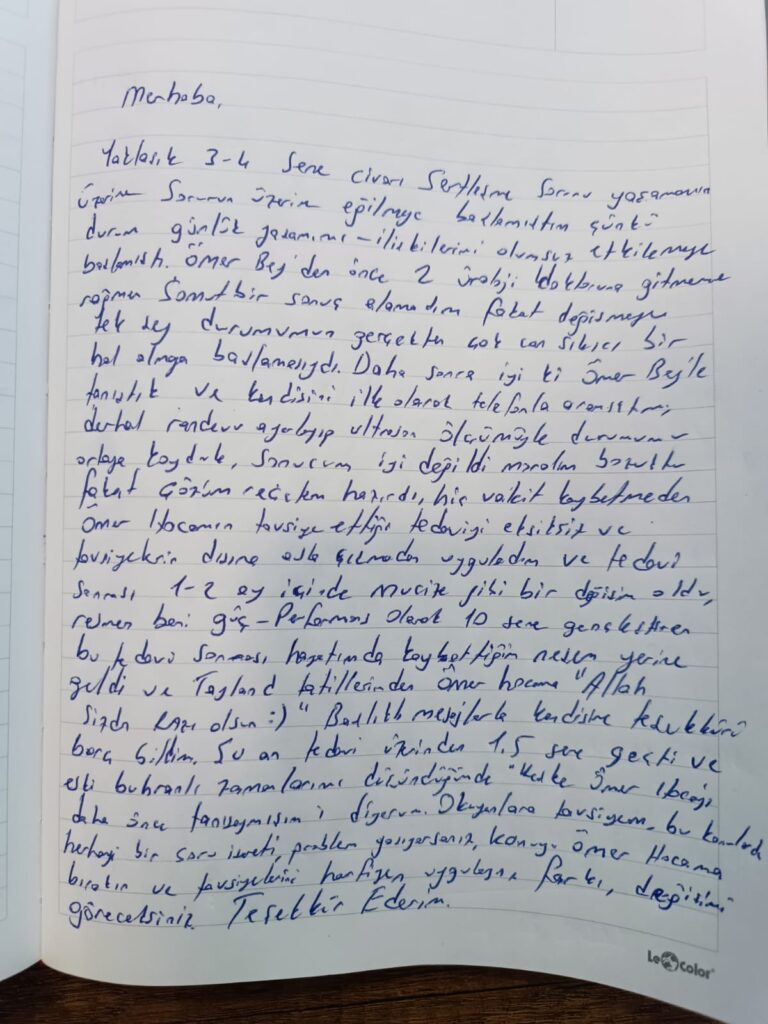 Merhaba,
Yaklaşık 3-4 sene civarı Sertleşme Sorunu yaşamamın
üzerine Sorunun üzerine eğilmeye başlamıştım çünkü
durum günlük yaşamımı - ilişkilerimi olumsuz etkilemeye
başlamıştı. Ömer Bey'den önce 2 üroloji doktoruna gitmeme
rağmen Somut bir sonuç alamadım fakat değişmeyen
tek şey durumumun gerçekten çok can sıkıcı bir
hal almaya başlamasıydı. Daha sonra iyi ki Ömer Bey'le
tanıştık ve kendisini ilk olarak telefonla
derhal randevu ayarlayıp ultrason ölçümüyle durumumu
ortaya koyduk, sonucum iyi değildi moralim bozuldu
fakat çözüm reçetem hazırdı, hiç vakit kaybetmeden
Ömer Hocamın tavsiye ettiği tedaviyi eksiksiz ve
tavsiyelerin dışına asla çıkmadan uyguladım ve tedavi
sonrası 1-2 ay içinde mucize gibi bir değişim oldu,
resmen beni güç - Performans olarak 10 sene gençleştiren
bu tedavi sonrası hayatımda kaybettiğim neşem yerine
geldi ve Tayland tatillerinden Ömer hocama "Allah
Sizden Razı olsun :)" Başlıklı mesajlarla kendisine teşekkürü
borç bildim. Şu an tedavi üzerinden 1.5 sene geçti ve
eski buhranlı zamanlarımı düşündüğümde "Keşke Ömer Hocayı
daha önce tanısaymışım" diyorum. Okuyanlara tavsiyem, bu konularda
herhangi bir soru işareti, problem yaşıyorsanız, konuyu Ömer Hocama
bırakın ve tavsiyelerini harfiyen uygulayın farkı, değişimi
göreceksiniz. Teşekkür Ederim.
Le Color